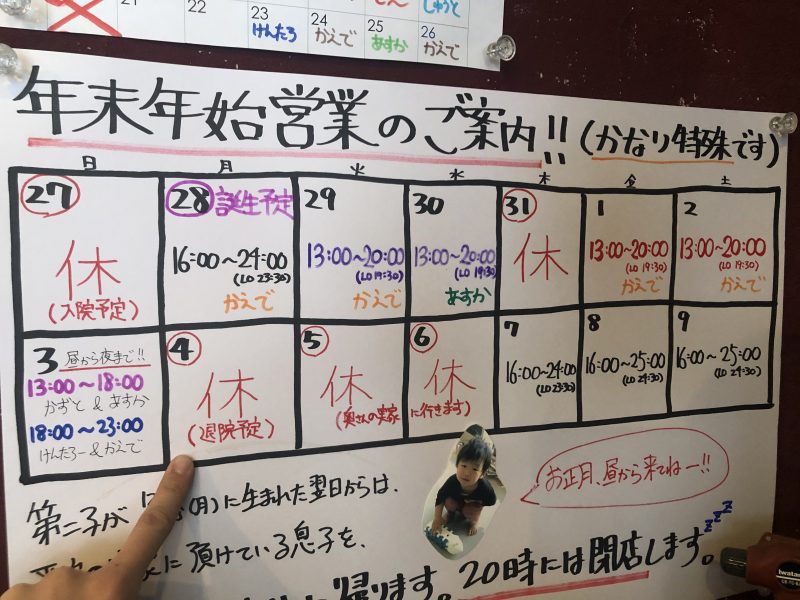 21
22
23
けんたろ
24
かえで
25
あすか
26
かえで
年末年始営業のご案内!! (かなり特殊です)
日 月 火 水 木 金 土
27
休
(入院予定)
28 誕生予定
16:00〜24:00
(LO 23:30)
かえで
29
13:00〜20:00
(LO 19:30)
かえで
30
13:00〜20:00
(LO 19:30)
あすか
31
休
1
13:00〜20:00
(LO 19:30)
かえで
2
13:00〜20:00
(LO 19:30)
かえで
3 昼から夜まで!!
13:00〜18:00
かずと & あすか
18:00〜23:00
けんたろー&かえで
4
休
(退院予定)
5
休
(奥さんの実家
6
休
に行きます)
7
16:00〜24:00
(LO 23:30)
8
16:00〜25:00
(LO 24:30)
9
16:00〜25:00
(LO 24:30)
お正月、昼から来てねー!!
第二子が (月)に生まれた翌日からは、
に預けている息子を、
帰ります。20時には閉店します。zzz
Iwata